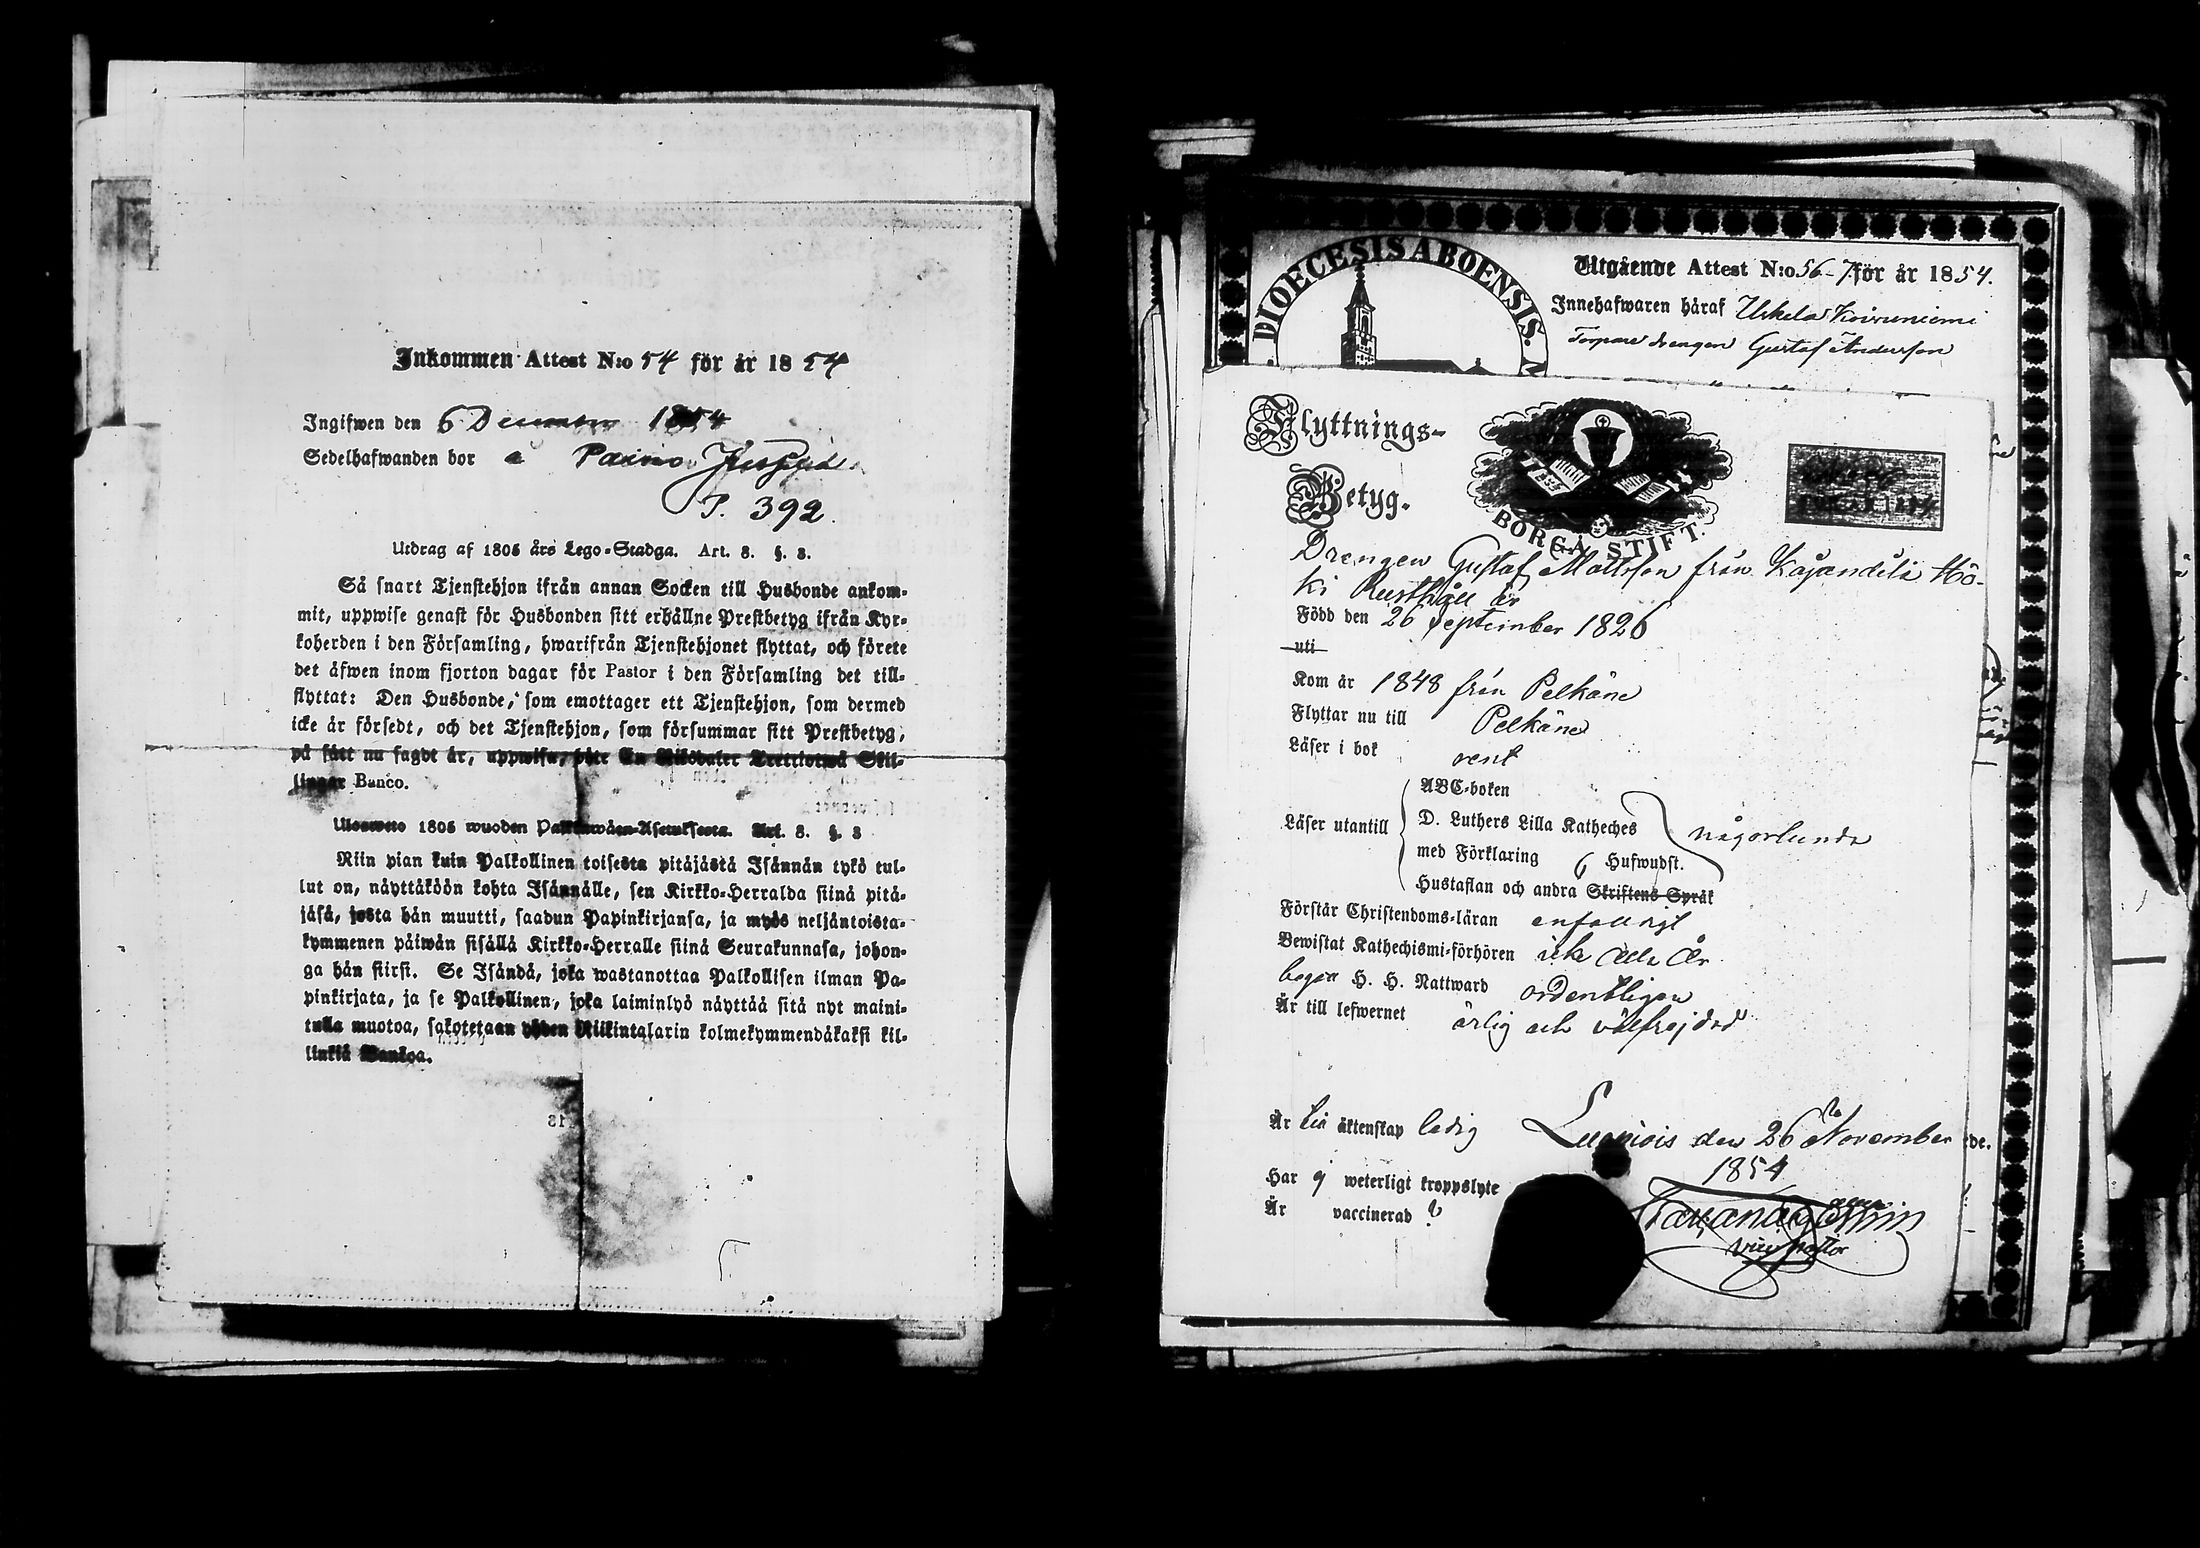 Inkommen Attest N:o 54 för år 1854
Ingifwen den 6 December 1854
Sedelhafwanden bor a Paino Juspila
P. 392.
Utdrag af 1805 års Lego-Stadga. Art. 8. §. 8.
Så snart Tjenstehjon ifrån annan Socken till Husbonde ankom-
mit, uppwise genast för Husbonden sitt erhållne Prestbetyg ifrån Kyr-
koherden i den Församling, hwarifrån Tjenstehjonet flyttat, och förete
det äfwen inom fjorton dagar för Pastor i den Församling det till-
flyttat: Den Husbonde, som emottager ett Tjenstehjon, som dermed
icke är försedt, och det Tjenstehjon, som försummar sitt Prestbetyg,
på sätt nu sagdt är, uppwisa, böte En Riksdaler Trettiotwå Skil-
lingar Banco.
Ulosweto 1805 wuoden Palkkuwäen-Asetuksesta. Art. 8. §. 8
Niin pian kuin Palkollinen toisesta pitäjästä Isännän tykö tul-
lut on, näyttäköön kohta Isännälle, sen Kirkko-Herralda siinä pitä-
jäsä, josta hän muutti, saadun Papinkirjansa, ja myös neljäntoista-
kymmenen päiwän sisällä Kirkko-Herralle siinä Seurakunnasa, johon-
ga hän siirsi. Se Isändä, joka wastanottaa Palkollisen ilman Pa-
pinkirjata, ja se Palkollinen, joka laiminlyö näyttää sitä nyt maini-
tulla muotoa, sakotetaan yhden Riikintalarin kolmekymmendäkaksi kil-
linkiä Bankoa.
DIOECESIS ABOENSIS.
Utgående Attest N:o 56-7 för år 1854.
Innehafwaren häraf Uskela Koivuniemi
Torpare drengen Gustaf Andersson
Flyttnings-
Betyg.
BORGÅ STIFT.
Drengen Gustaf Mattsson från Kajandila Hö-
ki Rusthåll är
Född den 26 September 1826
uti
Kom år 1848 från Pelkäne
Flyttar nu till Pelkäne
Läser i bok rent
ABC-boken
Läser utantill D. Luthers Lilla Katheches någorlunda
med Förklaring 6 Hufwudst.
Hustaflan och andra Skriftens Språk
Förstår Christendoms-läran enfaldigt
Bewistat Kathechismi-förhören icke alla År
begått H. H. Nattward ordentligen
Är till lefwernet ärlig och välfrejdad
Är till äktenskap ledig Luopiois den 26 November
1854
Har ej weterligt kroppslyte
Är vaccinerad
vice pastor